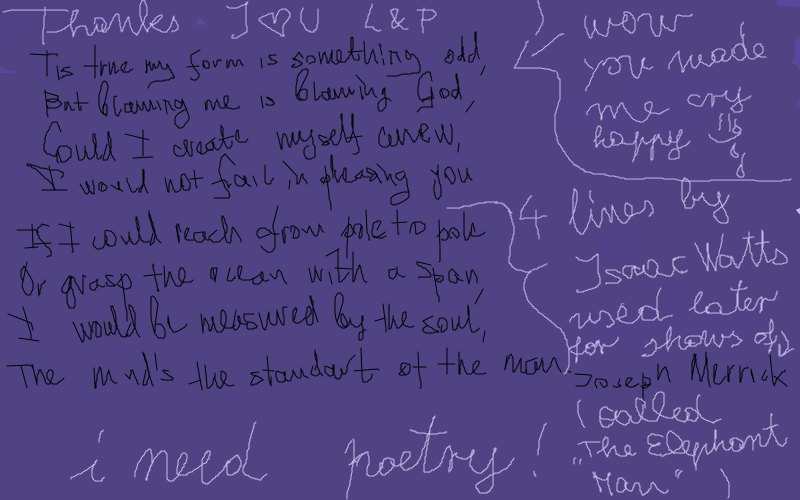 Thanks I ♡ U L&P
Tis true my form is something odd,
But blaming me is blaming God,
Could I create myself anew,
I would not fail in pleasing you
If I could reach from pole to pole
Or grasp the ocean with a span,
I would be measured by the soul,
The mind's the standart of the man.
wow
you made
me cry
happy
4 lines by
Isaac Watts
used later
for shows of
Joseph Merrick
( called
"The Elephant
Man" )
i need poetry!